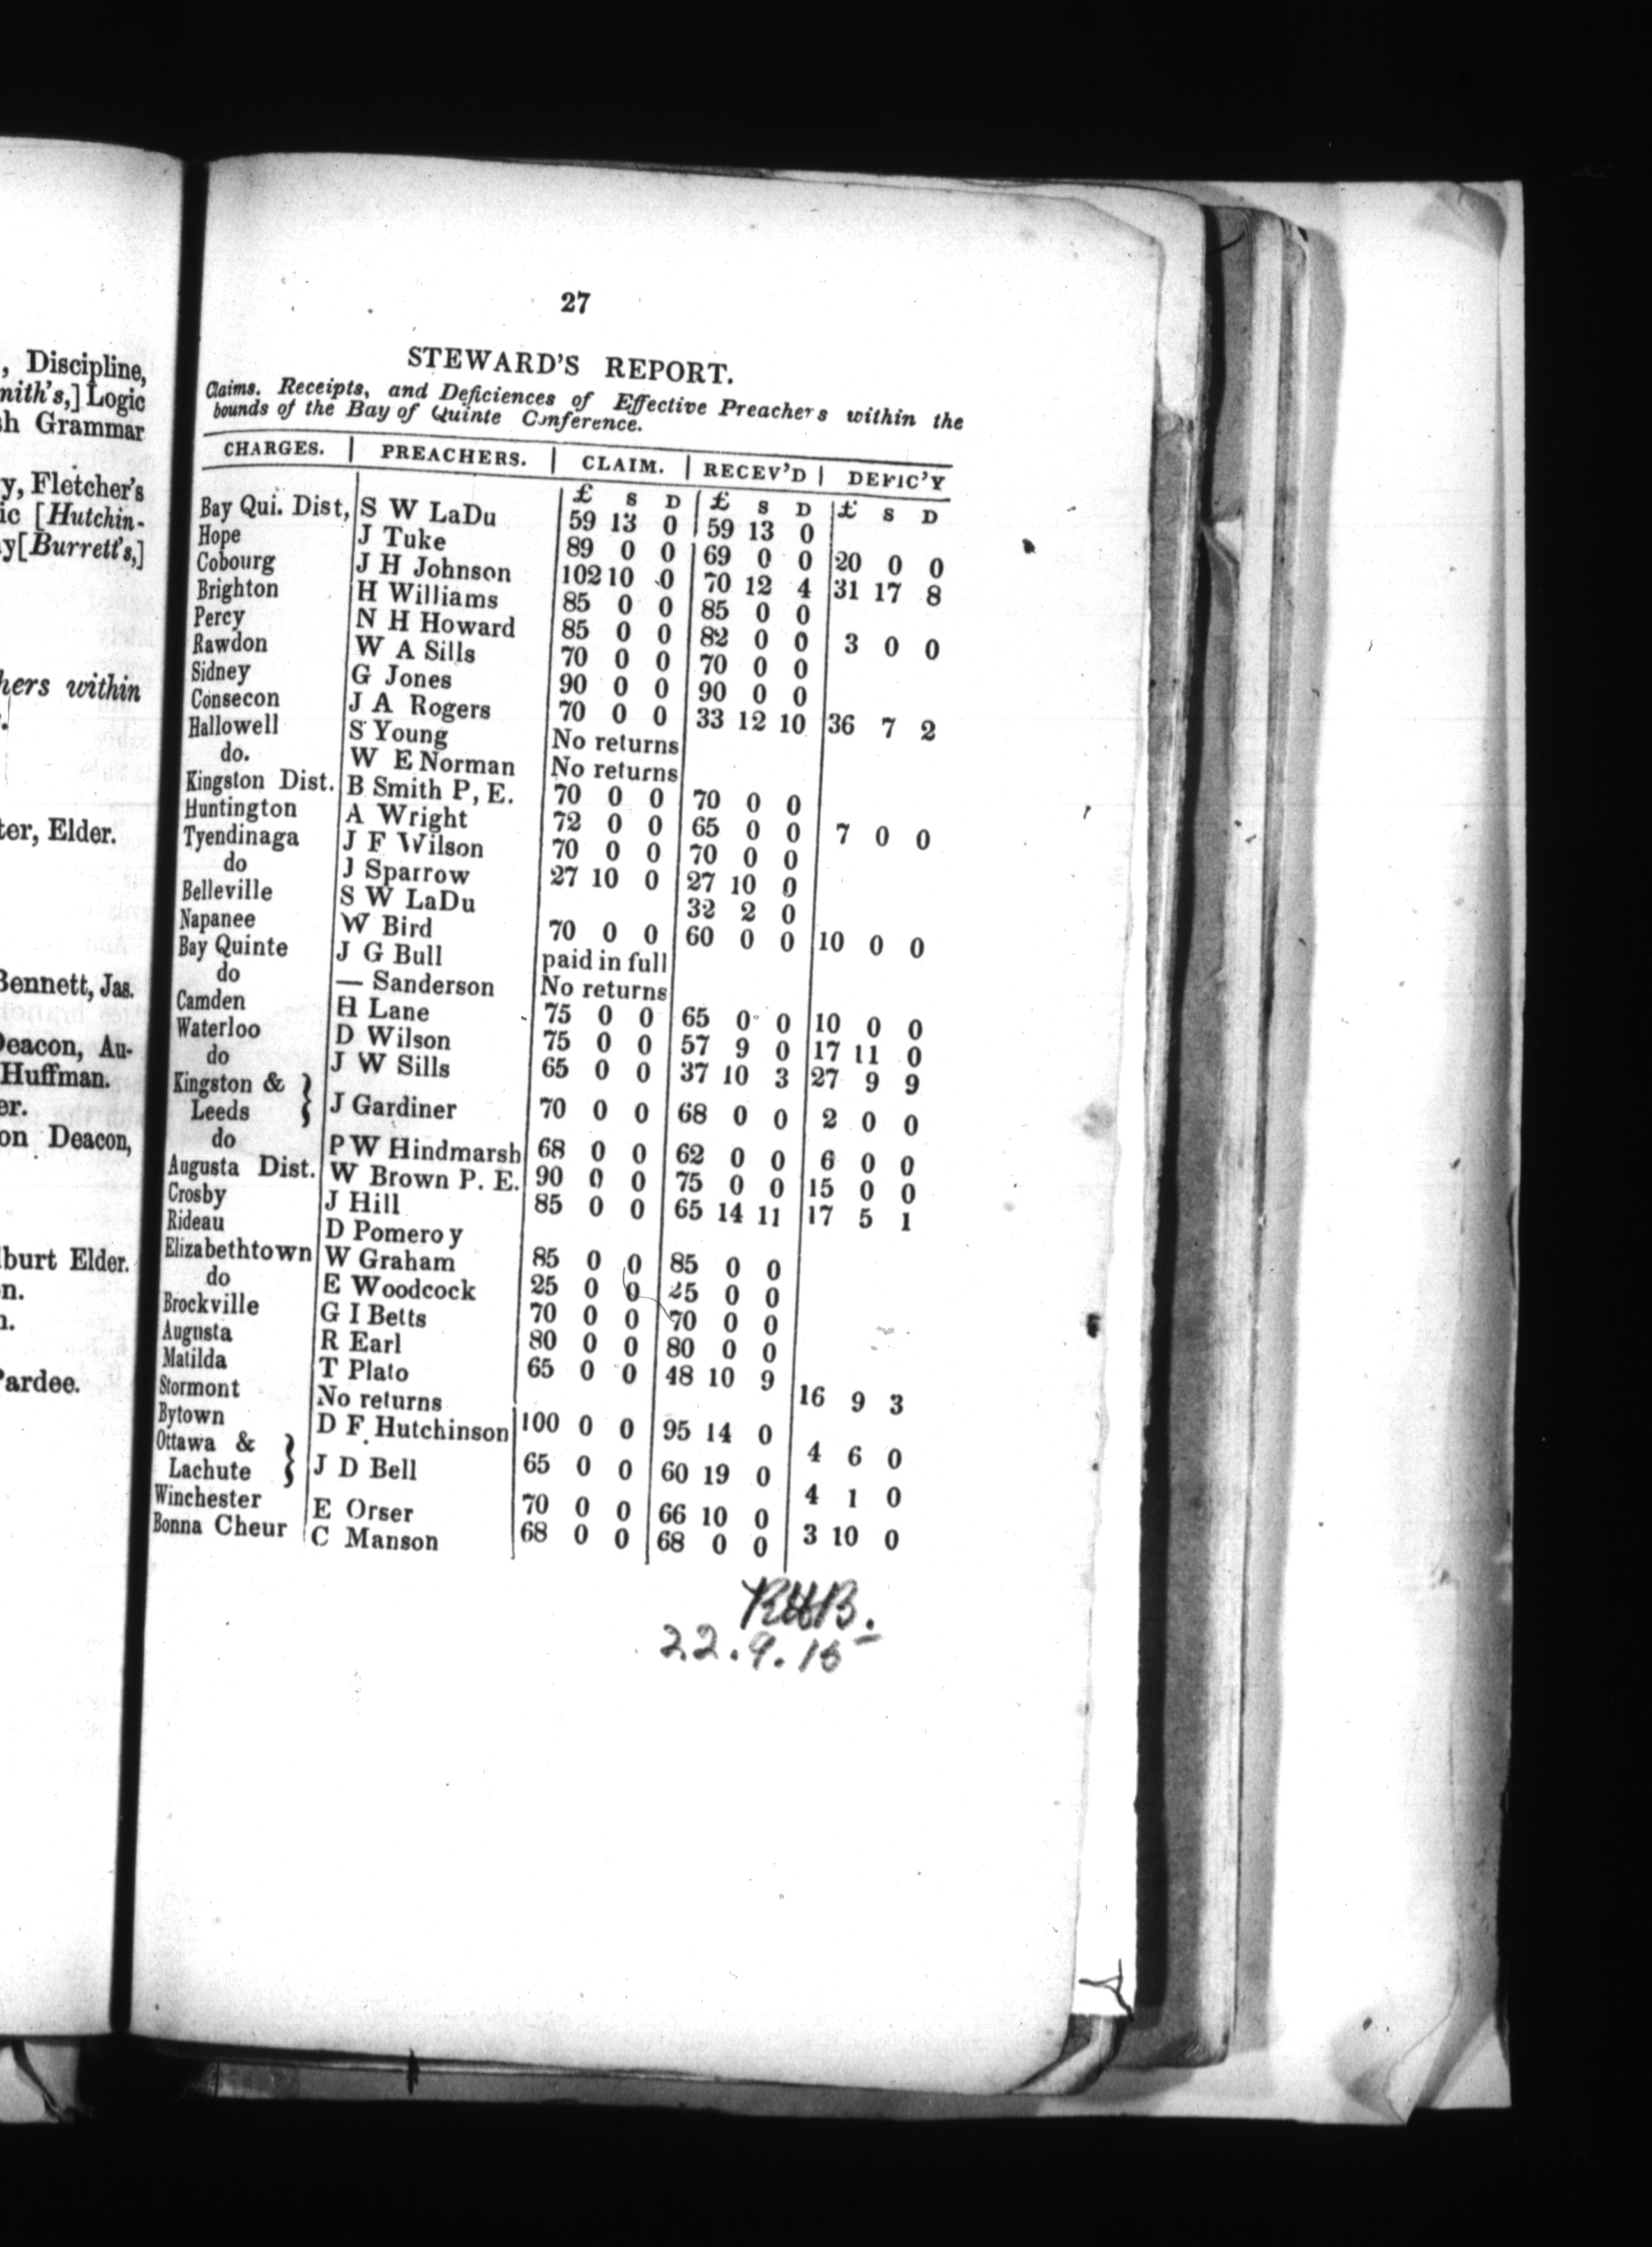 , Discipline,
nith's,] Logic
sh Grammar
y, Fletcher's
ic [Hutchin-
y[Burrett's,]
hers within
ter, Elder.
Bennett, Jas.
Deacon, Au-
Huffman.
er.
on Deacon,
lburt Elder.
n.
n.
Pardee.
27
STEWARD'S REPORT.
Claims. Receipts, and Deficiences of Effective Preachers within the
bounds of the Bay of Quinte Conference.
CHARGES. | PREACHERS. | CLAIM. | RECEV'D | DEFIC'Y
£ S D £ S D £ S D
Bay Qui. Dist, S W LaDu 59 13 0 59 13 0
Hope J Tuke 89 0 0 69 0 0 20 0 0
Cobourg J H Johnson 102 10 0 70 12 4 31 17 8
Brighton H Williams 85 0 0 85 0 0
Percy N H Howard 85 0 0 82 0 0 3 0 0
Rawdon W A Sills 70 0 0 70 0 0
Sidney G Jones 90 0 0 90 0 0
Consecon J A Rogers 70 0 0 33 12 10 36 7 2
Hallowell S Young No returns
do. W E Norman No returns
Kingston Dist. B Smith P, E. 70 0 0 70 0 0
Huntington A Wright 72 0 0 65 0 0 7 0 0
Tyendinaga J F Wilson 70 0 0 70 0 0
do J Sparrow 27 10 0 27 10 0
Belleville S W LaDu 32 2 0
Napanee W Bird 70 0 0 60 0 0 10 0 0
Bay Quinte J G Bull paid in full
do — Sanderson No returns
Camden H Lane 75 0 0 65 0 0 10 0 0
Waterloo D Wilson 75 0 0 57 9 0 17 11 0
do J W Sills 65 0 0 37 10 3 27 9 9
Kingston &
Leeds } J Gardiner 70 0 0 68 0 0 2 0 0
do P W Hindmarsh 68 0 0 62 0 0 6 0 0
Augusta Dist. W Brown P. E. 90 0 0 75 0 0 15 0 0
Crosby J Hill 85 0 0 65 14 11 17 5 1
Rideau D Pomeroy
Elizabethtown W Graham 85 0 0 85 0 0
do E Woodcock 25 0 0 25 0 0
Brockville G I Betts 70 0 0 70 0 0
Augusta R Earl 80 0 0 80 0 0
Matilda T Plato 65 0 0 48 10 9 16 9 3
Stormont No returns
Bytown D F. Hutchinson 100 0 0 95 14 0 4 6 0
Ottawa &
Lachute } J D Bell 65 0 0 60 19 0 4 1 0
Winchester E Orser 70 0 0 66 10 0 3 10 0
Bonna Cheur C Manson 68 0 0 68 0 0
22.9.15